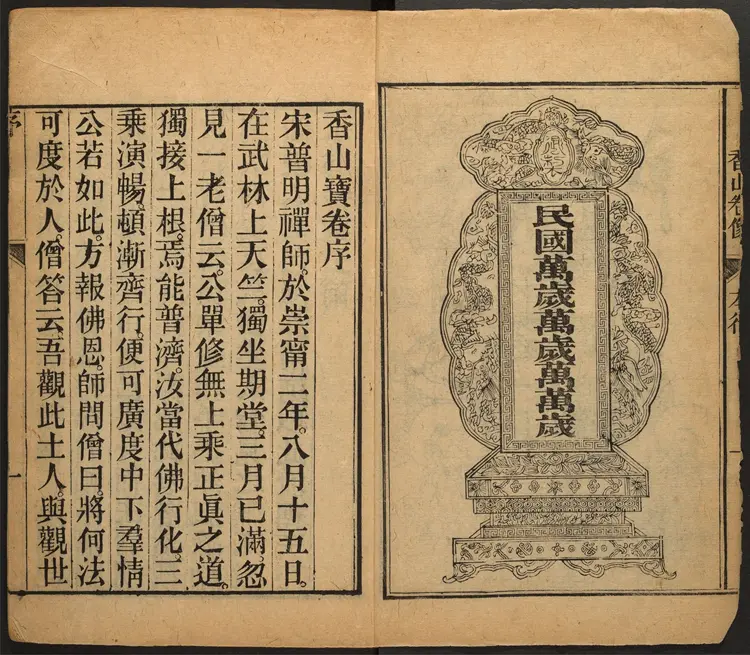 民國萬歲萬歲萬萬歲
香山寶卷序
宋普明禪師。於崇甯二年。八月十五日。
在武林上天竺。獨坐期堂。三月已滿。忽
見一老僧云。公單修無上乘正眞之道。
獨接上根。焉能普濟。汝當代佛行化。三
乘演暢。頓漸齊行。便可廣度中下羣情
公若如此。方報佛恩。師問僧曰。將何法
可度於人。僧答云。吾觀此土人。與觀世
序
一